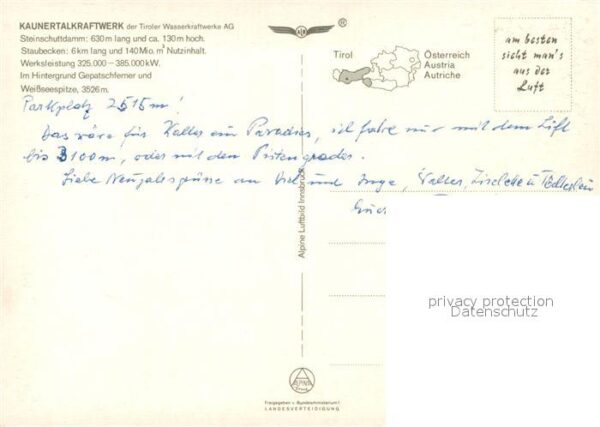 KAUNERTALKRAFTWERK der Tiroler Wasserkraftwerke AG
Steinschuttdamm: 630m lang und ca. 130m hoch.
Staubecken: 6km lang und 140 Mio. m³ Nutzinhalt.
Werksleistung 325.000 – 385.000 kW.
Im Hintergrund Gepatschferner und
Weißseespitze, 3526m.
®
Tirol
Österreich
Austria
Autriche
am besten
sieht man's
aus der
Luft
Parkplatz 2515m!
Das wäre für Walter ein Paradies, ich fahre nur mit dem Lift
bis 3100m, oder mit den
Liebe Neujahrsgrüsse an und Inge, Walter, Liselotte u
Alpine Luftbild Innsbruck
privacy protection
Datenschutz
ALPINE
Freigegeben v. Bundesministerium f.
LANDESVERTEIDIGUNG